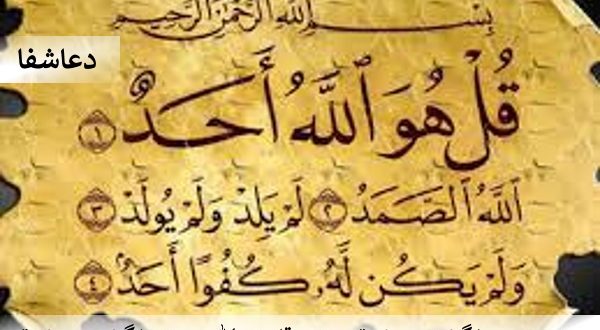 بِسْمِ اللَّهِ الرَّحْمَٰنِ الرَّحِيمِ
دعاشفا
قُلْ هُوَ ٱللَّهُ أَحَدٌ ١
ٱللَّهُ ٱلصَّمَدُ ٢ لَمْ يَلِدْ وَلَمْ يُولَدْ ٣
وَلَمْ يَكُن لَّهُۥ كُفُوًا أَحَدٌۢ ٤